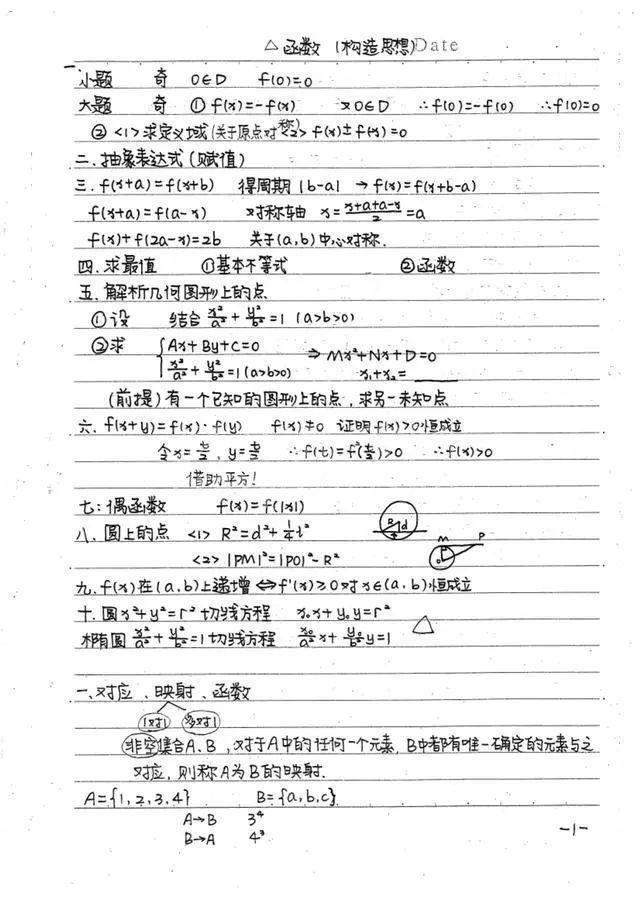 △函数 (构造思想) Date
一 小题 奇 0∈D f(0)=0
大题 奇 ① f(x)=-f(x) 又0∈D ∴f(0)=-f(0) ∴f(0)=0
② <1>求定义域(关于原点对称)<2> f(x)±f(-x)=0
二. 抽象表达式(赋值)
三. f(x+a)=f(x+b) 得周期 |b-a| → f(x)=f(x+b-a)
f(x+a)=f(a-x) 对称轴 x=\frac{x+a+a-x}{2}=a
f(x)+f(2a-x)=2b 关于(a,b)中心对称.
四. 求最值 ①基本不等式 ②函数
五. 解析几何图形上的点
①设 结合\frac{x²}{a²}+\frac{y²}{b²}=1 (a>b>0)
②求 {Ax+By+C=0 ⇒ Mx²+Nx+D=0
\frac{x²}{a²}+\frac{y²}{b²}=1(a>b>0) x₁+x₂=____
(前提)有一个已知的图形上的点,求另一未知点
六. f(x+y)=f(x)·f(y) f(x)≠0 证明f(x)>0恒成立
令x=\frac{t}{2}, y=\frac{t}{2} ∴f(t)=f²(\frac{t}{2})>0 ∴f(x)>0
借助平方!
七: 偶函数 f(x)=f(|x|)
八. 圆上的点 <1> R²=d²+\frac{1}{4}l² R d
<2> |PM|²=|PO|²-R² M P O
九. f(x)在(a,b)上递增⇔f'(x)≥0对x∈(a,b)恒成立
十. 圆x²+y²=r²切线方程 x₀x+y₀y=r²
椭圆\frac{x²}{a²}+\frac{y²}{b²}=1切线方程 \frac{x₀}{a²}x+\frac{y₀}{b²}y=1 △
一、对应、映射、函数
1对1 多对1
非空集合A、B,对于A中的任何一个元素,B中都有唯一确定的元素与之
对应,则称A为B的映射.
A={1,2,3,4} B={a,b,c}
A→B 3⁴
B→A 4³
-1-